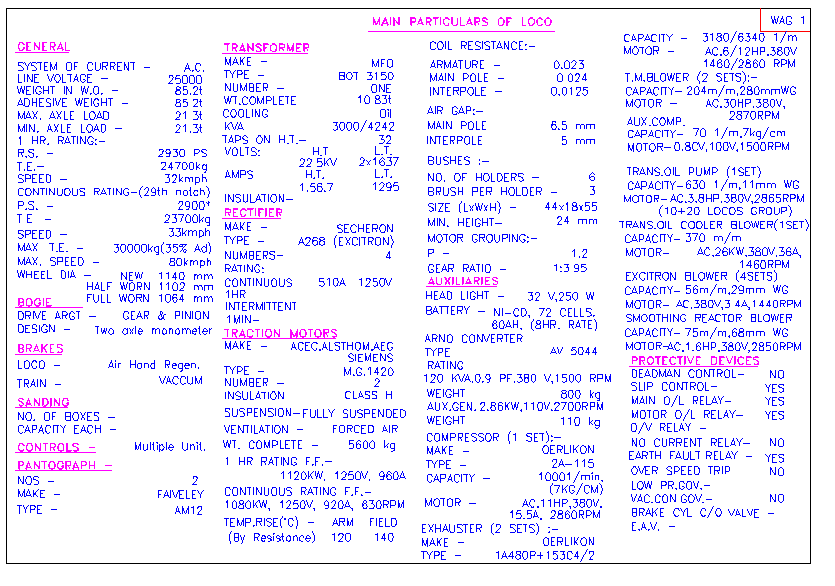 MAIN PARTICULARS OF LOCO
WAG 1
GENERAL
SYSTEM OF CURRENT – A.C.
LINE VOLTAGE – 25000
WEIGHT IN W.O. – 85.2t
ADHESIVE WEIGHT – 85.2t
MAX. AXLE LOAD 21.3t
MIN. AXLE LOAD – 21.3t
1 HR. RATING:–
R.S. – 2930 PS
T.E.– 24700kg
SPEED – 32kmph
CONTINUOUS RATING–(29th notch)
P.S. – 2900*
T.E 23700kg
SPEED – 33kmph
MAX T.E. – 30000kg(35% Ad)
MAX. SPEED – 80kmph
WHEEL DIA – NEW 1140 mm
HALF WORN 1102 mm
FULL WORN 1064 mm
BOGIE
DRIVE ARGT – GEAR & PINION
DESIGN – Two axle monometer
BRAKES
LOCO – Air Hand Regen.
TRAIN – VACCUM
SANDING
NO. OF BOXES –
CAPACITY EACH –
CONTROLS – Multiple Unit.
PANTOGRAPH –
NOS – 2
MAKE – FAIVELEY
TYPE – AM12
TRANSFORMER
MAKE – MFO
TYPE – BOT 3150
NUMBER – ONE
WT.COMPLETE 10.83t
COOLING Oil
KVA 3000/4242
TAPS ON H.T.– 32
VOLTS: H.T L.T.
22.5KV 2x1637
AMPS H.T. L.T.
1.56.7 1295
INSULATION–
RECTIFIER
MAKE – SECHERON
TYPE – A268 (EXCITRON)
NUMBERS– 4
RATING:
CONTINUOUS 510A 1250V
1HR
INTERMITTENT
1MIN–
TRACTION MOTORS
MAKE – ACEC.ALSTHOM.AEG
SIEMENS
TYPE – M.G.1420
NUMBER – 2
INSULATION CLASS H
SUSPENSION–FULLY SUSPENDED
VENTILATION – FORCED AIR
WT. COMPLETE – 5600 kg
1 HR RATING F.F.–
1120KW, 1250V, 960A
CONTINUOUS RATING F.F.–
1080KW, 1250V, 920A, 630RPM
TEMP.RISE(°C) – ARM FIELD
(By Resistance) 120 140
COIL RESISTANCE:–
ARMATURE – 0.023
MAIN POLE – 0.024
INTERPOLE – 0.0125
AIR GAP:–
MAIN POLE 6.5 mm
INTERPOLE 5 mm
BUSHES :–
NO. OF HOLDERS – 6
BRUSH PER HOLDER – 3
SIZE (LxWxH) – 44x18x55
MIN. HEIGHT– 24 mm
MOTOR GROUPING:–
P – 1.2
GEAR RATIO – 1:3.95
AUXILIARIES
HEAD LIGHT – 32 V,250 W
BATTERY – NI–CD, 72 CELLS.
60AH, (8HR. RATE)
ARNO CONVERTER
TYPE AV 5044
RATING
120 KVA.0.9 PF.380 V,1500 RPM
WEIGHT 800 kg
AUX.GEN. 2.86KW,110V,2700RPM
WEIGHT 110 kg
COMPRESSOR (1 SET):–
MAKE – OERLIKON
TYPE – 2A–115
CAPACITY – 1000l/min,
(7KG/CM)
MOTOR – AC.11HP,380V,
15.5A, 2860RPM
EXHAUSTER (2 SETS) :–
MAKE – OERLIKON
TYPE – 1A480P+153C4/2
CAPACITY – 3180/6340 1/m
MOTOR – AC.6/12HP.380V
1460/2860 RPM
T.M.BLOWER (2 SETS):–
CAPACITY– 204m/m,280mmWG
MOTOR – AC.30HP.380V,
2870RPM
AUX.COMP.
CAPACITY– 70 1/m,7kg/cm
MOTOR–0.80V,100V,1500RPM
TRANS.OIL PUMP (1SET)
CAPACITY–630 1/m,11mm WG
MOTOR–AC.3.8HP,380V,2865RPM
(10+20 LOCOS GROUP)
TRANS.OIL COOLER BLOWER(1SET)
CAPACITY–370 m/m
MOTOR– AC.26KW,380V,36A,
1460RPM
EXCITRON BLOWER (4SETS)
CAPACITY– 56m/m,29mm WG
MOTOR– AC.380V,3.4A,1440RPM
SMOOTHING REACTOR BLOWER
CAPACITY– 75m/m,68mm WG
MOTOR–AC.1.6HP,380V,2850RPM
PROTECTIVE DEVICES
DEADMAN CONTROL– NO
SLIP CONTROL– YES
MAIN O/L RELAY– YES
MOTOR O/L RELAY– YES
O/V RELAY –
NO CURRENT RELAY– NO
EARTH FAULT RELAY – YES
OVER SPEED TRIP NO
LOW PR.GOV.–
VAC.CON GOV.– NO
BRAKE CYL C/O VALVE –
E.A.V. –